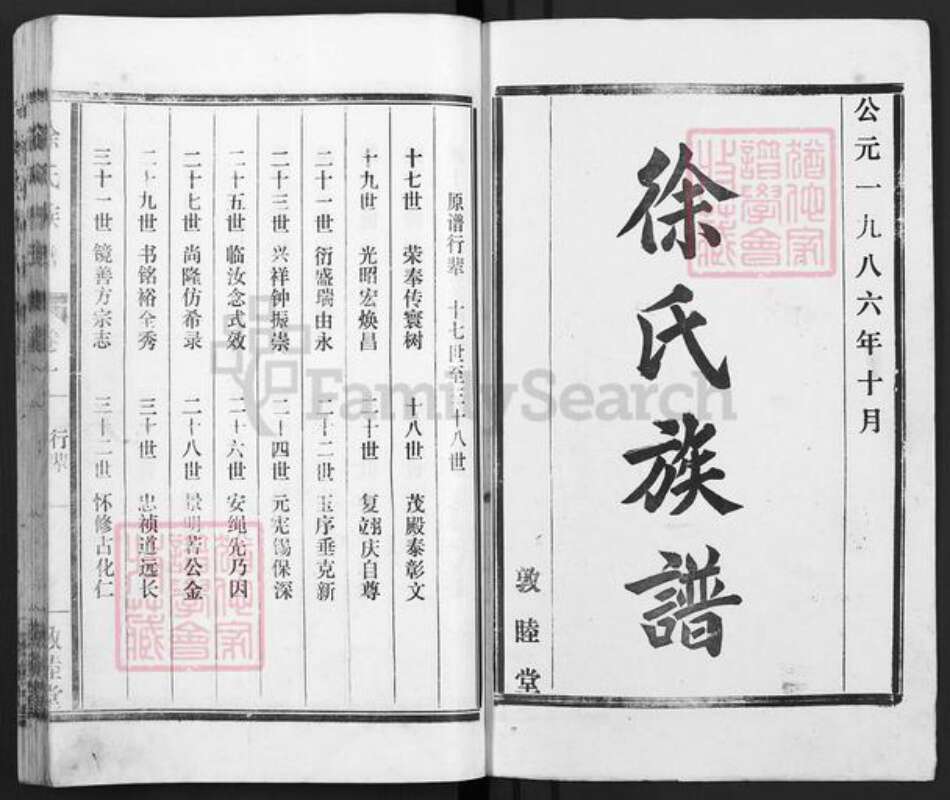 公元一九八六年十月
徐氏族譜
敦睦堂
原谱行辈 十七世至三十八世
十七世 荣奉传寰树 十八世 茂殿泰彰文
十九世 光昭宏焕昌 二十世 复翊庆自尊
二十一世 衍盛瑞由永 二十二世 玉序垂克新
二十三世 兴祥钟振崇 二十四世 元宪锡保深
二十五世 临汝念式效 二十六世 安绳先乃因
二十七世 尚隆仿希录 二十八世 景明若公金
二十九世 书铭裕全秀 三十世 忠祯道远长
三十一世 镜善方宗志 三十二世 怀修古化仁
徐氏族谱 卷 行辈 敦睦堂
FamilySearch
譜學會
收藏
譜學會
收藏